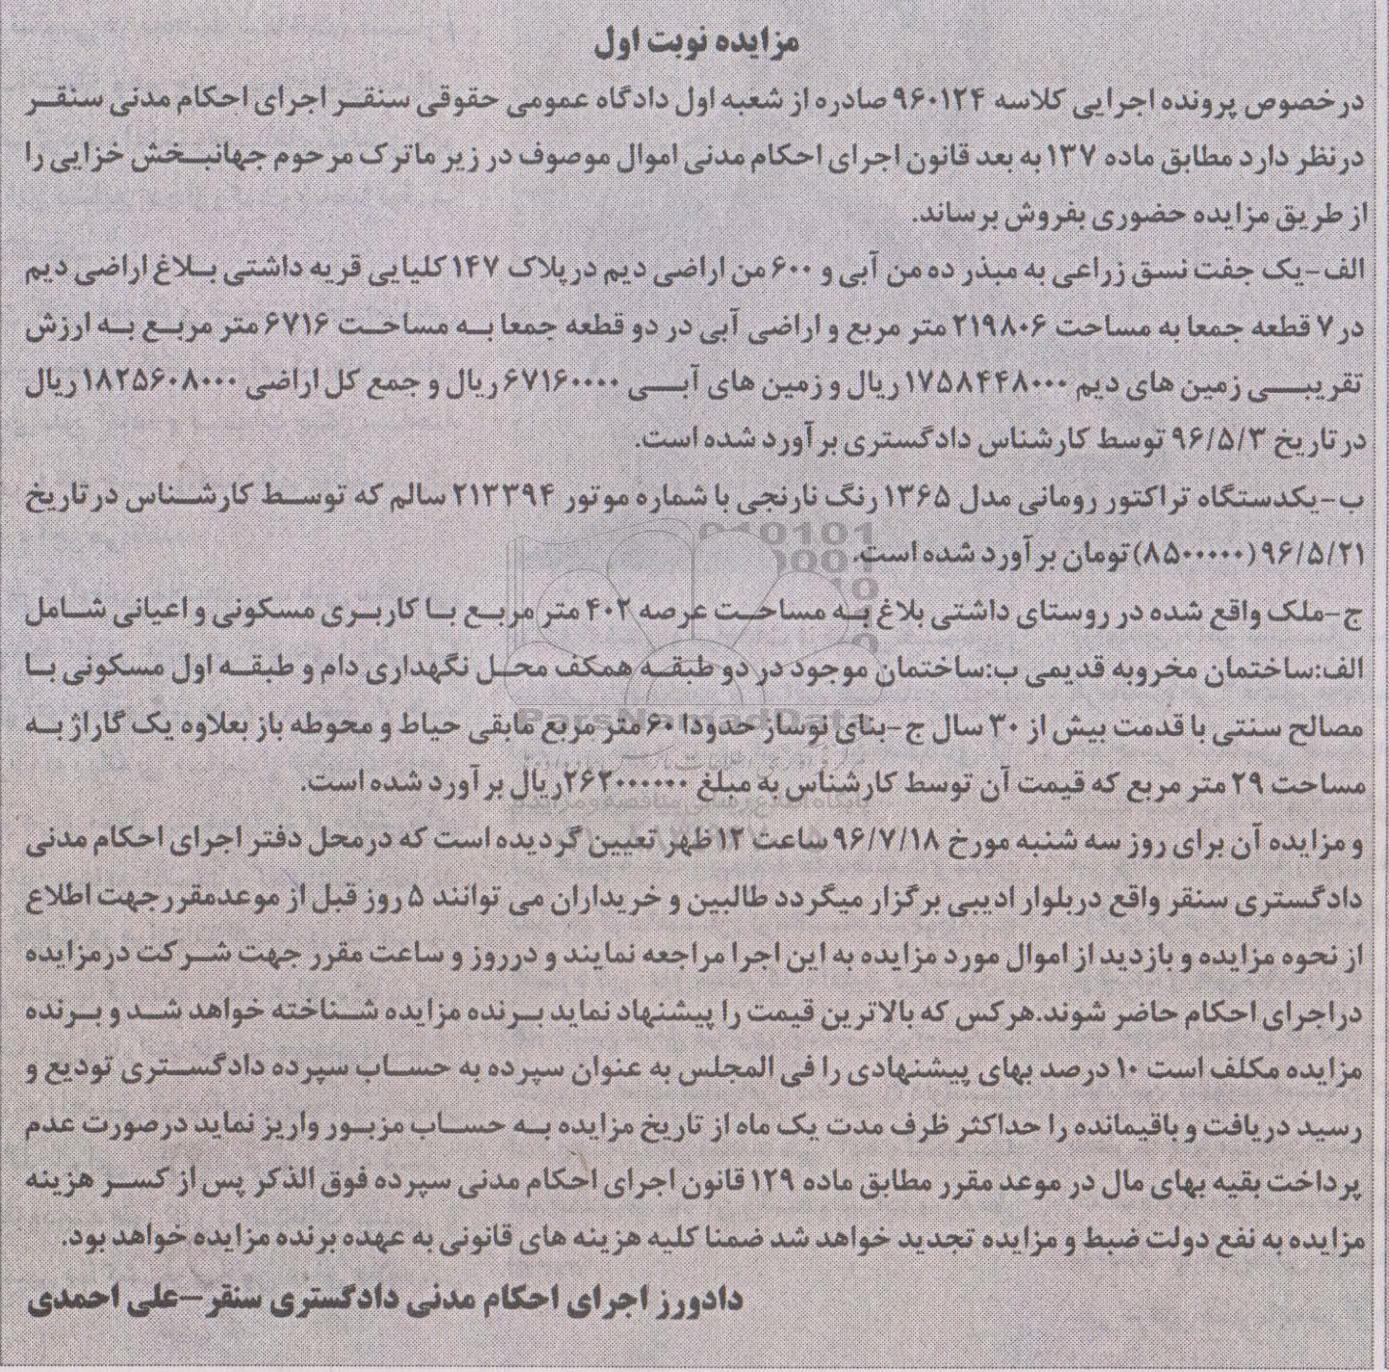 مزایده نوبت اول
درخصوص پرونده اجرایی کلاسه ۹۶۰۱۲۴ صادره از شعبه اول دادگاه عمومی حقوقی سنقر اجرای احکام مدنی سنقر
درنظر دارد مطابق ماده ۱۳۷ به بعد قانون اجرای احکام مدنی اموال موصوف در زیر ماترک مرحوم جهانبخش خزایی را
از طریق مزایده حضوری بفروش برساند.
الف-یک جفت نسق زراعی به مبذر ده من آبی و ۶۰۰ من اراضی دیم درپلاک ۱۴۷ کلیایی قریه داشتی بلاغ اراضی دیم
در ۷ قطعه جمعا به مساحت ۲۱۹۸۰۶ متر مربع و اراضی آبی در دو قطعه جمعا به مساحت ۶۷۱۶ متر مربع به ارزش
تقریبی زمین های دیم ۱۷۵۸۴۴۸۰۰۰ ریال و زمین های آبی ۶۷۱۶۰۰۰۰ ریال و جمع کل اراضی ۱۸۲۵۶۰۸۰۰۰ ریال
در تاریخ ۹۶/۵/۳ توسط کارشناس دادگستری برآورد شده است.
ب-یکدستگاه تراکتور رومانی مدل ۱۳۶۵ رنگ نارنجی با شماره موتور ۲۱۳۳۹۴ سالم که توسط کارشناس در تاریخ
۹۶/۵/۲۱ (۸۵۰۰۰۰۰) تومان برآورد شده است.
ج-ملک واقع شده در روستای داشتی بلاغ به مساحت عرصه ۴۰۲ متر مربع با کاربری مسکونی و اعیانی شامل
الف:ساختمان مخروبه قدیمی ب:ساختمان موجود در دو طبقه همکف محل نگهداری دام و طبقه اول مسکونی با
مصالح سنتی با قدمت بیش از ۳۰ سال ج-بنای نوساز حدودا ۶۰ متر مربع مابقی حیاط و محوطه باز بعلاوه یک گاراژ به
مساحت ۲۹ متر مربع که قیمت آن توسط کارشناس به مبلغ ۲۶۲۰۰۰۰۰۰ ریال برآورد شده است.
و مزایده آن برای روز سه شنبه مورخ ۹۶/۷/۱۸ ساعت ۱۲ ظهر تعیین گردیده است که درمحل دفتر اجرای احکام مدنی
دادگستری سنقر واقع دربلوار ادیبی برگزار میگردد طالبین و خریداران می توانند ۵ روز قبل از موعدمقررجهت اطلاع
از نحوه مزایده و بازدید از اموال مورد مزایده به این اجرا مراجعه نمایند و درروز و ساعت مقرر جهت شرکت درمزایده
دراجرای احکام حاضر شوند.هرکس که بالاترین قیمت را پیشنهاد نماید برنده مزایده شناخته خواهد شد و برنده
مزایده مکلف است ۱۰ درصد بهای پیشنهادی را فی المجلس به عنوان سپرده به حساب سپرده دادگستری تودیع و
رسید دریافت و باقیمانده را حداکثر ظرف مدت یک ماه از تاریخ مزایده به حساب مزبور واریز نماید درصورت عدم
پرداخت بقیه بهای مال در موعد مقرر مطابق ماده ۱۲۹ قانون اجرای احکام مدنی سپرده فوق الذکر پس از کسر هزینه
مزایده به نفع دولت ضبط و مزایده تجدید خواهد شد ضمنا کلیه هزینه های قانونی به عهده برنده مزایده خواهد بود.
دادورز اجرای احکام مدنی دادگستری سنقر-علی احمدی